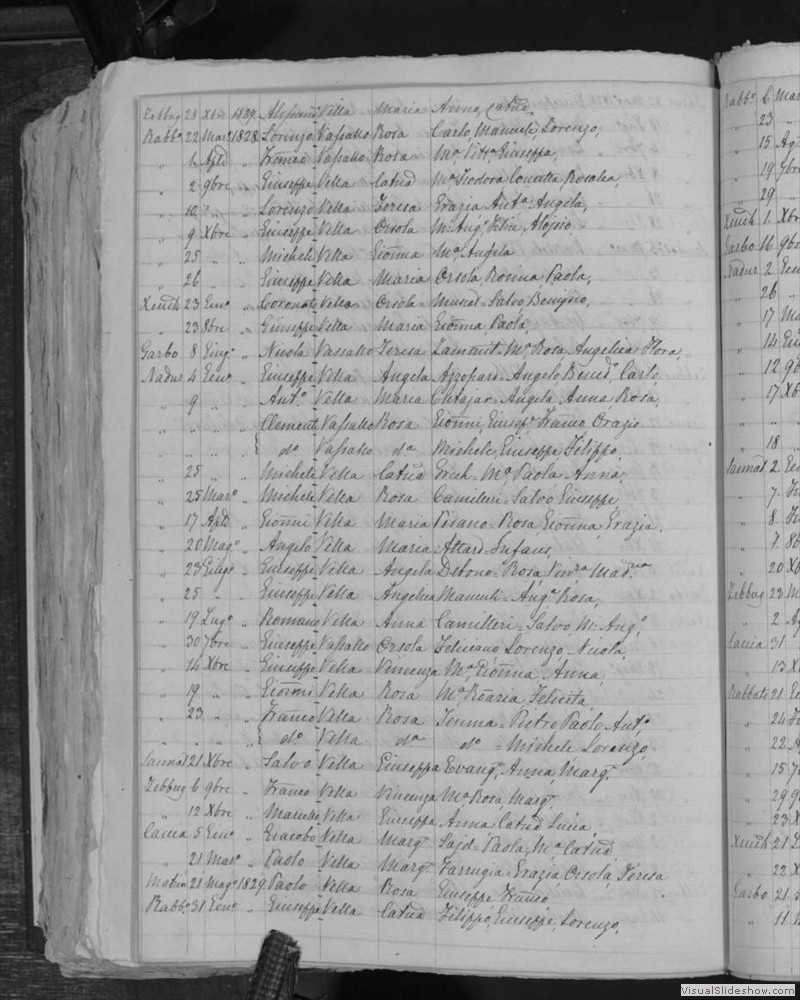 Zebbug 28 Xbre 1827. Alessand. Vella Maria Anna, Catna,
Rabbo. 22 Mar. 1828. Lorenzo Vassallo Rosa Carlo, Manuele, Lorenzo,
" 1 Aple " Franco Vassallo Rosa Ma. Vitta. Giuseppa,
" 2 9bre " Giuseppe Vella Catna Ma. Teodora Concetta Rosalea,
" 10 " " Lorenzo Vella Teresa Grazia Anta. Angela,
" 9 Xbre " Giuseppe Vella Orsola M: Ang. Felice Alojsio
" 25 " " Michele Vella Gionna Ma. Angela
" 26 " " Giuseppe Vella Maria Orsola, Rosina, Paola,
Xeuch. 23 Geno. " Coronato Vella Orsola Muscat - Salvo Benigno,
" 23 8bre " Giuseppe Vella Maria Gionna Paola,
Garbo 8 Giugo. " Nicola Vassallo Teresa Zammit - Ma. Rosa Angelica Flora,
Nadur 4 Geno. " Giuseppe Vella Angela Azzopard - Angelo Bened. Carlo,
" 9 " " Anto. Vella Maria Cutajar - Angela Anna Rosa,
" " " " Clement. Vassallo Rosa Gionni, Giusepe. Franco Orazio
" " " " { do. Vassallo da Michele, Giuseppe Filippo,
" 25 " " Michele Vella Catna Grech - Ma. Paola Anna,
" 25 Maro. " Michele Vella Rosa Camilleri - Salvo Giuseppe,
" 17 Aple " Gionni Vella Maria Pisano - Rosa, Gionna, Grazia.
" 20 Mago. " Angelo Vella Maria Attard - Infans,
" 23 Giugo " Giuseppe Vella Angela Debono - Rosa,
" 25 " Giuseppe Vella Angelica Manueli - Anga. Rosa,
" 19 Lugo. " Romano Vella Anna Camilleri - Salvo, M: Ang.,
" 30 7bre " Giuseppe Vassallo Orsola Feliciano Lorenzo Nicola,
" 14 Xbre " Giuseppe Vella Vincenza Ma. Gionna Anna,
" 19 " " Gionni Vella Rosa Ma. Rosaria, Felicita,
" 23 " " Franco Vella Rosa Tenma - Pietro Paolo Anto.,
" " " " { do. Vella da do - Michele Lorenzo,
Sannat 21 Xbre " Salvo Vella Giuseppa Evang. Anna, Marg.
Zebbug 6 9bre " Franco Vella Vincenza Ma. Rosa, Marg.
" 12 Xbre " Marcello Vella Giuseppa Anna Catna Lucia,
Caccia 5 Geno. " Giacobo Vella Marg. Sajd - Paola, Ma. Catna
" 21 Maro. " Paolo Vella Marg. Farrugia - Grazia Orsola, Teresa
21 Mago. 1829. Paolo Vella Rosa Giuseppe Franco
Rabbo. 31 Geno. " Giuseppe Vella Catna Filippo, Giuseppe, Lorenzo,
Rabbo. 6 Mar
" 23 "
" 15 Ag
" 19 7bre
" 29 "
Xeuch 1 Xb
Garbo 16 9b
Nadur 2 Gen
" 26 "
" 17 Ma
" 14 Giu
" 12 9b
" 17 Xb
" 18 "
Sannat 2 Ge
" 7
" 8
" 7 8b
" 20 Xb
Zebbug 23 M
" 2 Ag
Caccia 31
" 13 X
Rabbato 21 Ge
" 24
" 22 A
" 15 7
" 29 9
" 23 X
Xeuch 21
" 22 X
Garbo 21
" 11
VisualSlideshow.com